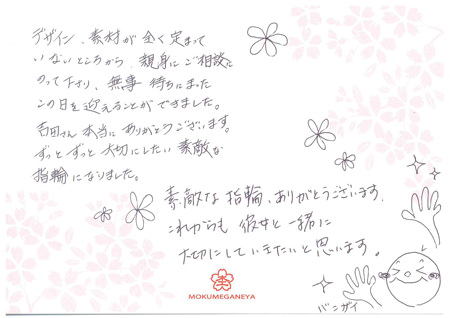 デザイン、素材が全く定まって
いないところから、親身にご相談に
のって下さり、無事 待ちにまった
この日を迎えることができました。
吉田さん 本当に ありがとうございます。
ずっと ずっと 大切にしたい 素敵な
指輪になりました。
素敵な 指輪、ありがとうございます。
これからも 彼女と一緒に
大切にしていきたいと思います。
バンザイ
MOKUMEGANEYA